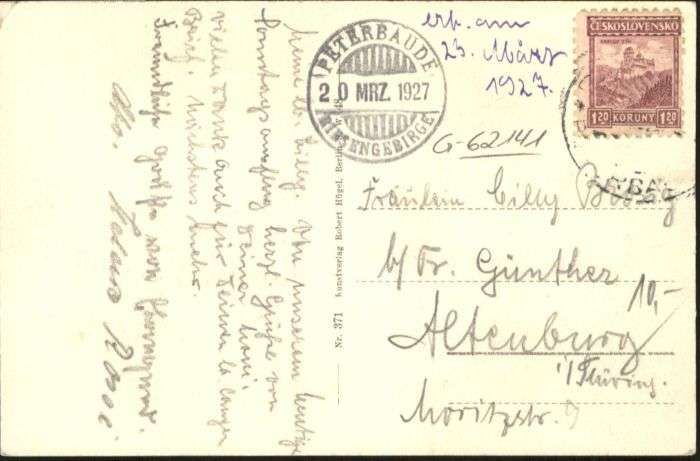 Meine lb. Cilly. Von unserem heutigen
Sonntagsausflug herzl. Grüße von
Deiner Toni.
vielen Dank auch für Deinen lb. langen
Brief. Nächstens mehr.
Freundliche Grüße von
PETERBAUDE
20 MRZ. 1927
RIESENGEBIRGE
erh. am
23. März
1927.
ČESKOSLOVENSKO
1.20 KORUNY 1.20
G-62141
Nr. 371 Kunstverlag Robert Hügel, Berlin
Fräulein Cilly
b/Fr. Günther
10,-
Altenburg
i/Thüring.
Moritzstr. 9